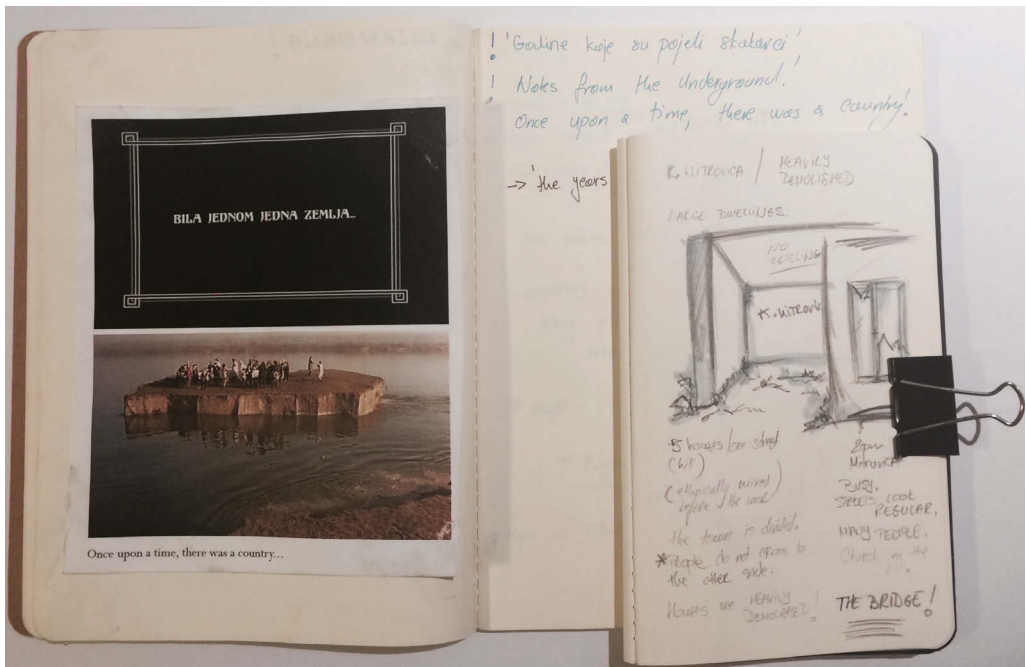 BILA JEDNOM JEDNA ZEMLJA...
Once upon a time, there was a country...
! 'Godine koje su pojeli skakavci'
! Notes from the Underground.
Once upon a time, there was a country!
-> 'the years
K. MITROVICA / HEAVILY
DEMOLISHED
LARGE DWELLINGS.
NO
CEILING
K. MITROVIC
5 houses/one street
(hill)
(ethnically mixed)
before the war
the town is divided.
*People do not cross to
the other side.
Houses are HEAVILY
DEMOLISHED!
MITROVICA
BUSY.
STREETS LOOK
REGULAR.
MANY PEOPLE.
Church on the
hill.
THE BRIDGE!